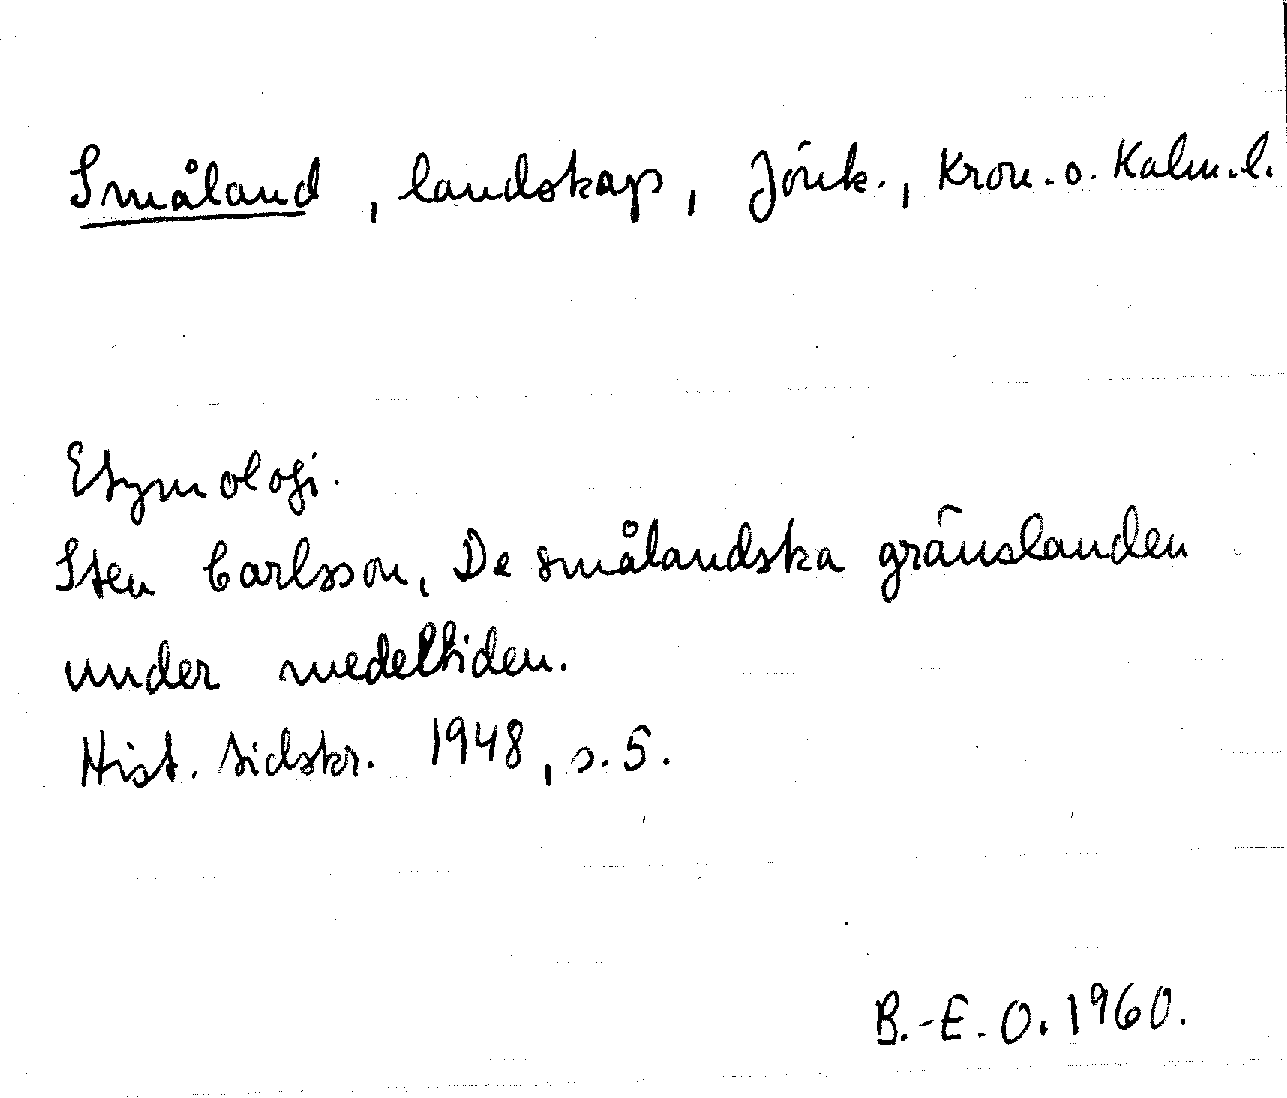 Småland, landskap, Jönk., Kron. o. Kalm. l.
Etymologi.
Sten Carlsson, De småländska gränslanden
under medeltiden.
Hist. tidskr. 1948, s. 5.
B.-E. O. 1960.